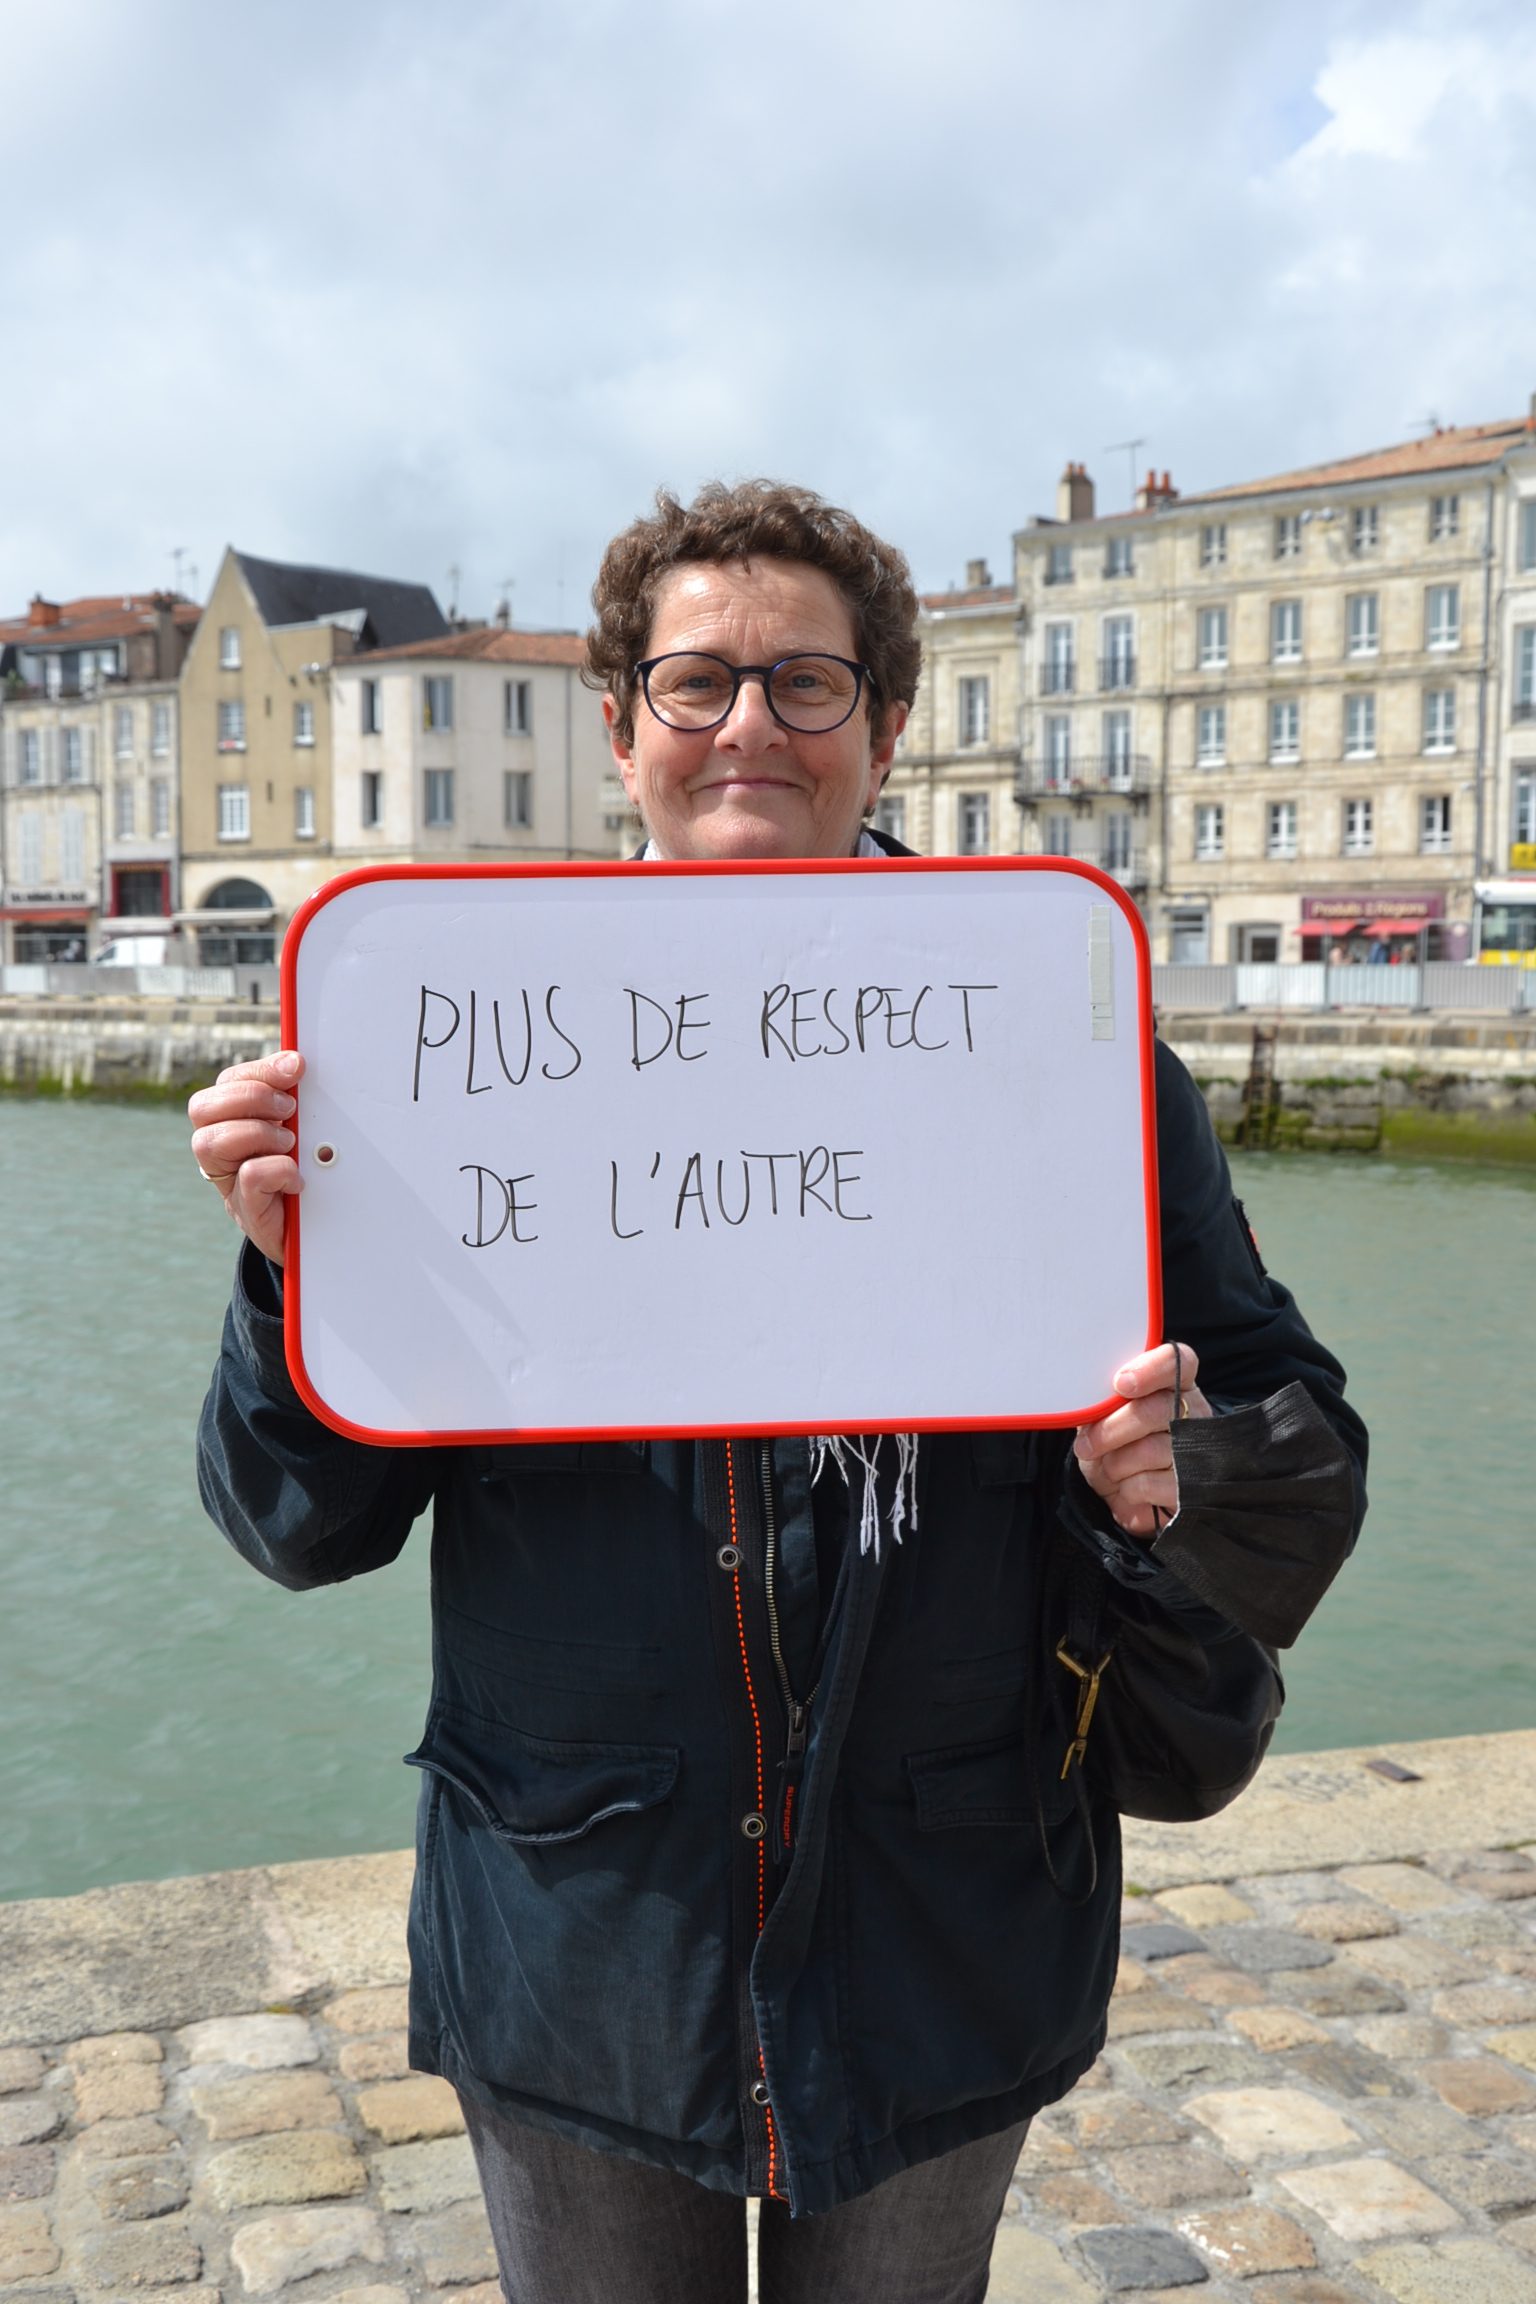 Produits & Régions
PLUS DE RESPECT
DE L'AUTRE
SUPERDRY